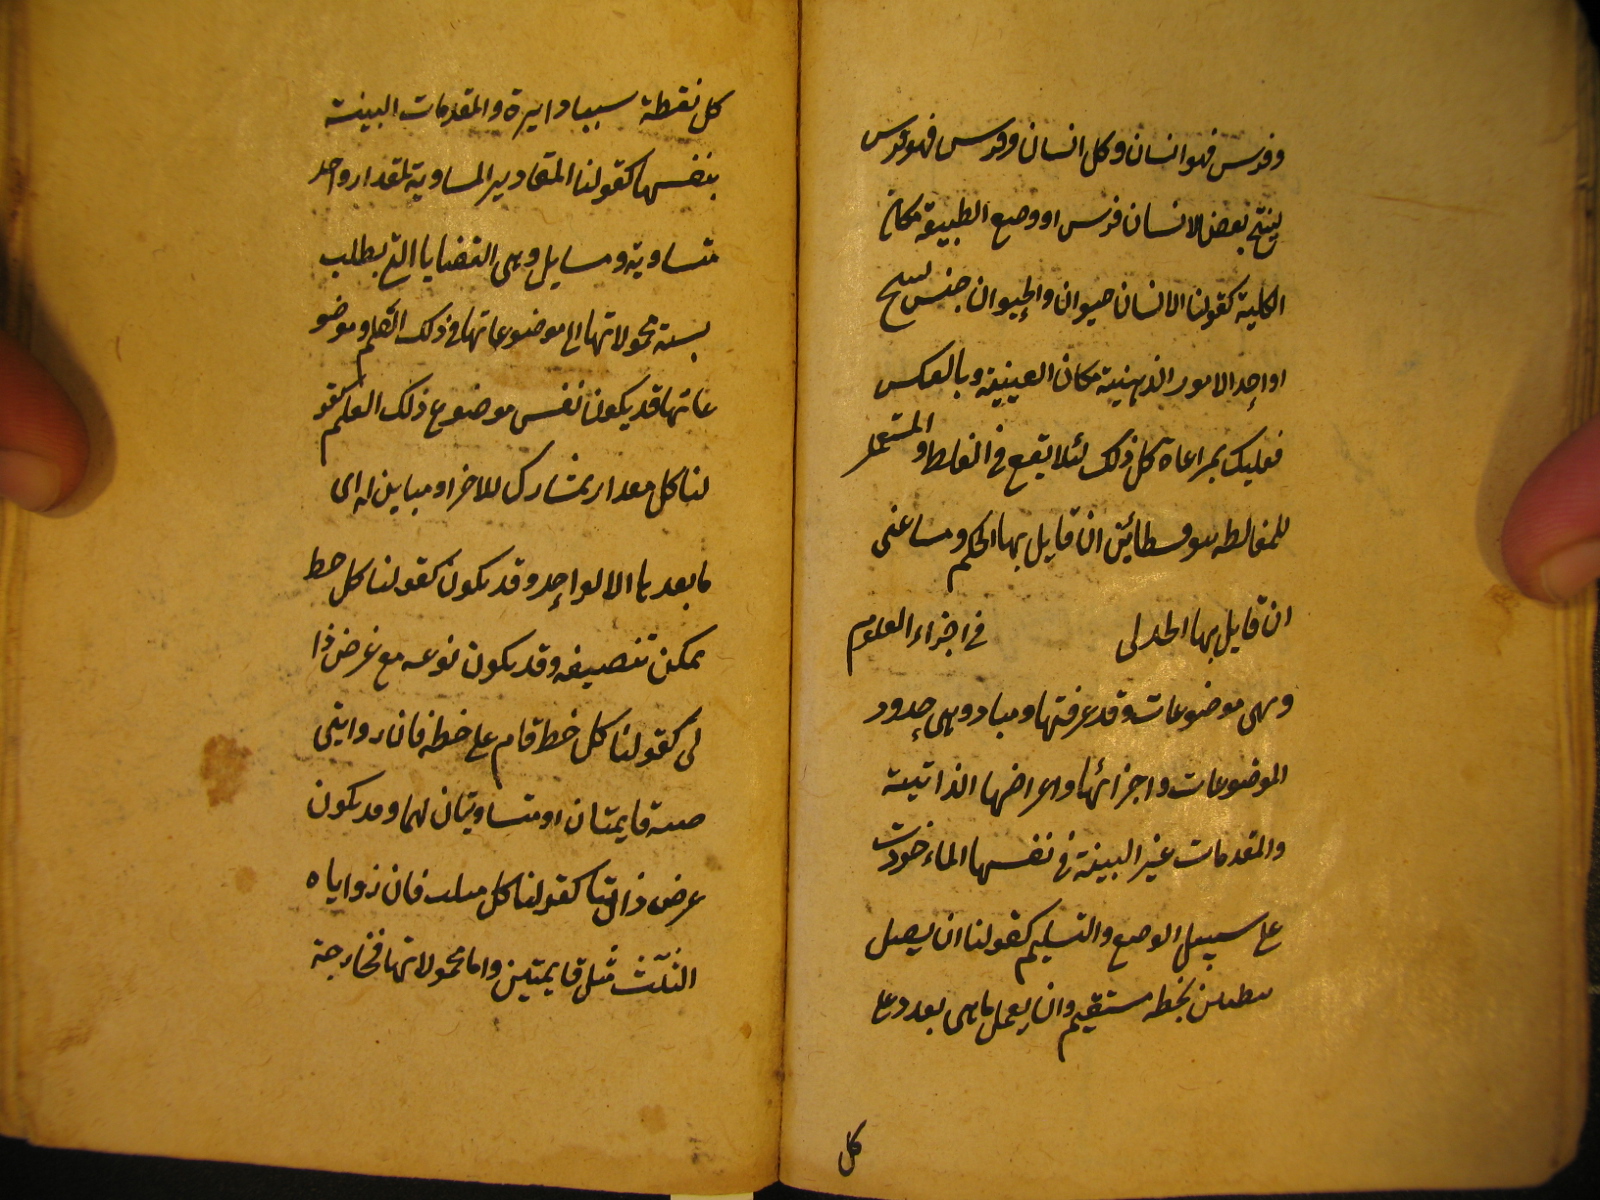 وفرس فهو انسان وكل انسان وفرس فهو فرس
ينتج بعض الانسان فرس او وضع الطبيعة مكان
الكلية كقولنا الانسان حيوان والحيوان جنس
او اخذ الامور الذهنية مكان العينية وبالعكس
فعليك بمراعاة كل ذلك لئلا يقع في الغلط والمستعمل
للمغالطه سوفسطائي ان قايل بها الحكيم ومشاغبي
ان قايل بها الجدلي في اجزاء العلوم
وهي موضوعات وقد عرفتها ومباد وهي حدود
الموضوعات واجزائها واعراضها الذاتية
والمقدمات غير البينة في نفسها الماءخوذة
على سبيل الوضع والتسليم كقولنا ان يصل
نقطتين بخطه مستقيم وان يعمل باهى بعد وعلى
كل
كل نقطة سببا دايرة والمقدمات البينة
بنفسها كقولنا المقادير المساوية لمقدار واحد
متساوية ومسايل وهى القضايا التي يطلب
بسته محمولاتها الى موضوعاتها في ذلك العلم وموضو
عاتها قد يكون نفس موضوع ذلك العلم كقو
لنا كل مقدار مشارك للاخر او مباين له اى
ما بعد بها الا الواحد وقد يكون كقولنا كل خط
يمكن تنصيفه وقد يكون نوعه مع عرض ذا
تى كقولنا كل خط قام على خطه فان زوايتى
قايمتان او متساويتان لهما وقد يكون
عرض ذاتيا كقولنا كل مثلث فان زواياه
الثلث مثل قايمتين واما محمولاتها فخارجة